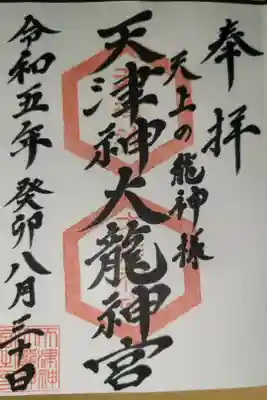 奉拝
天上の龍神様
天津神大龍神宮
令和五年 癸卯 八月三十日